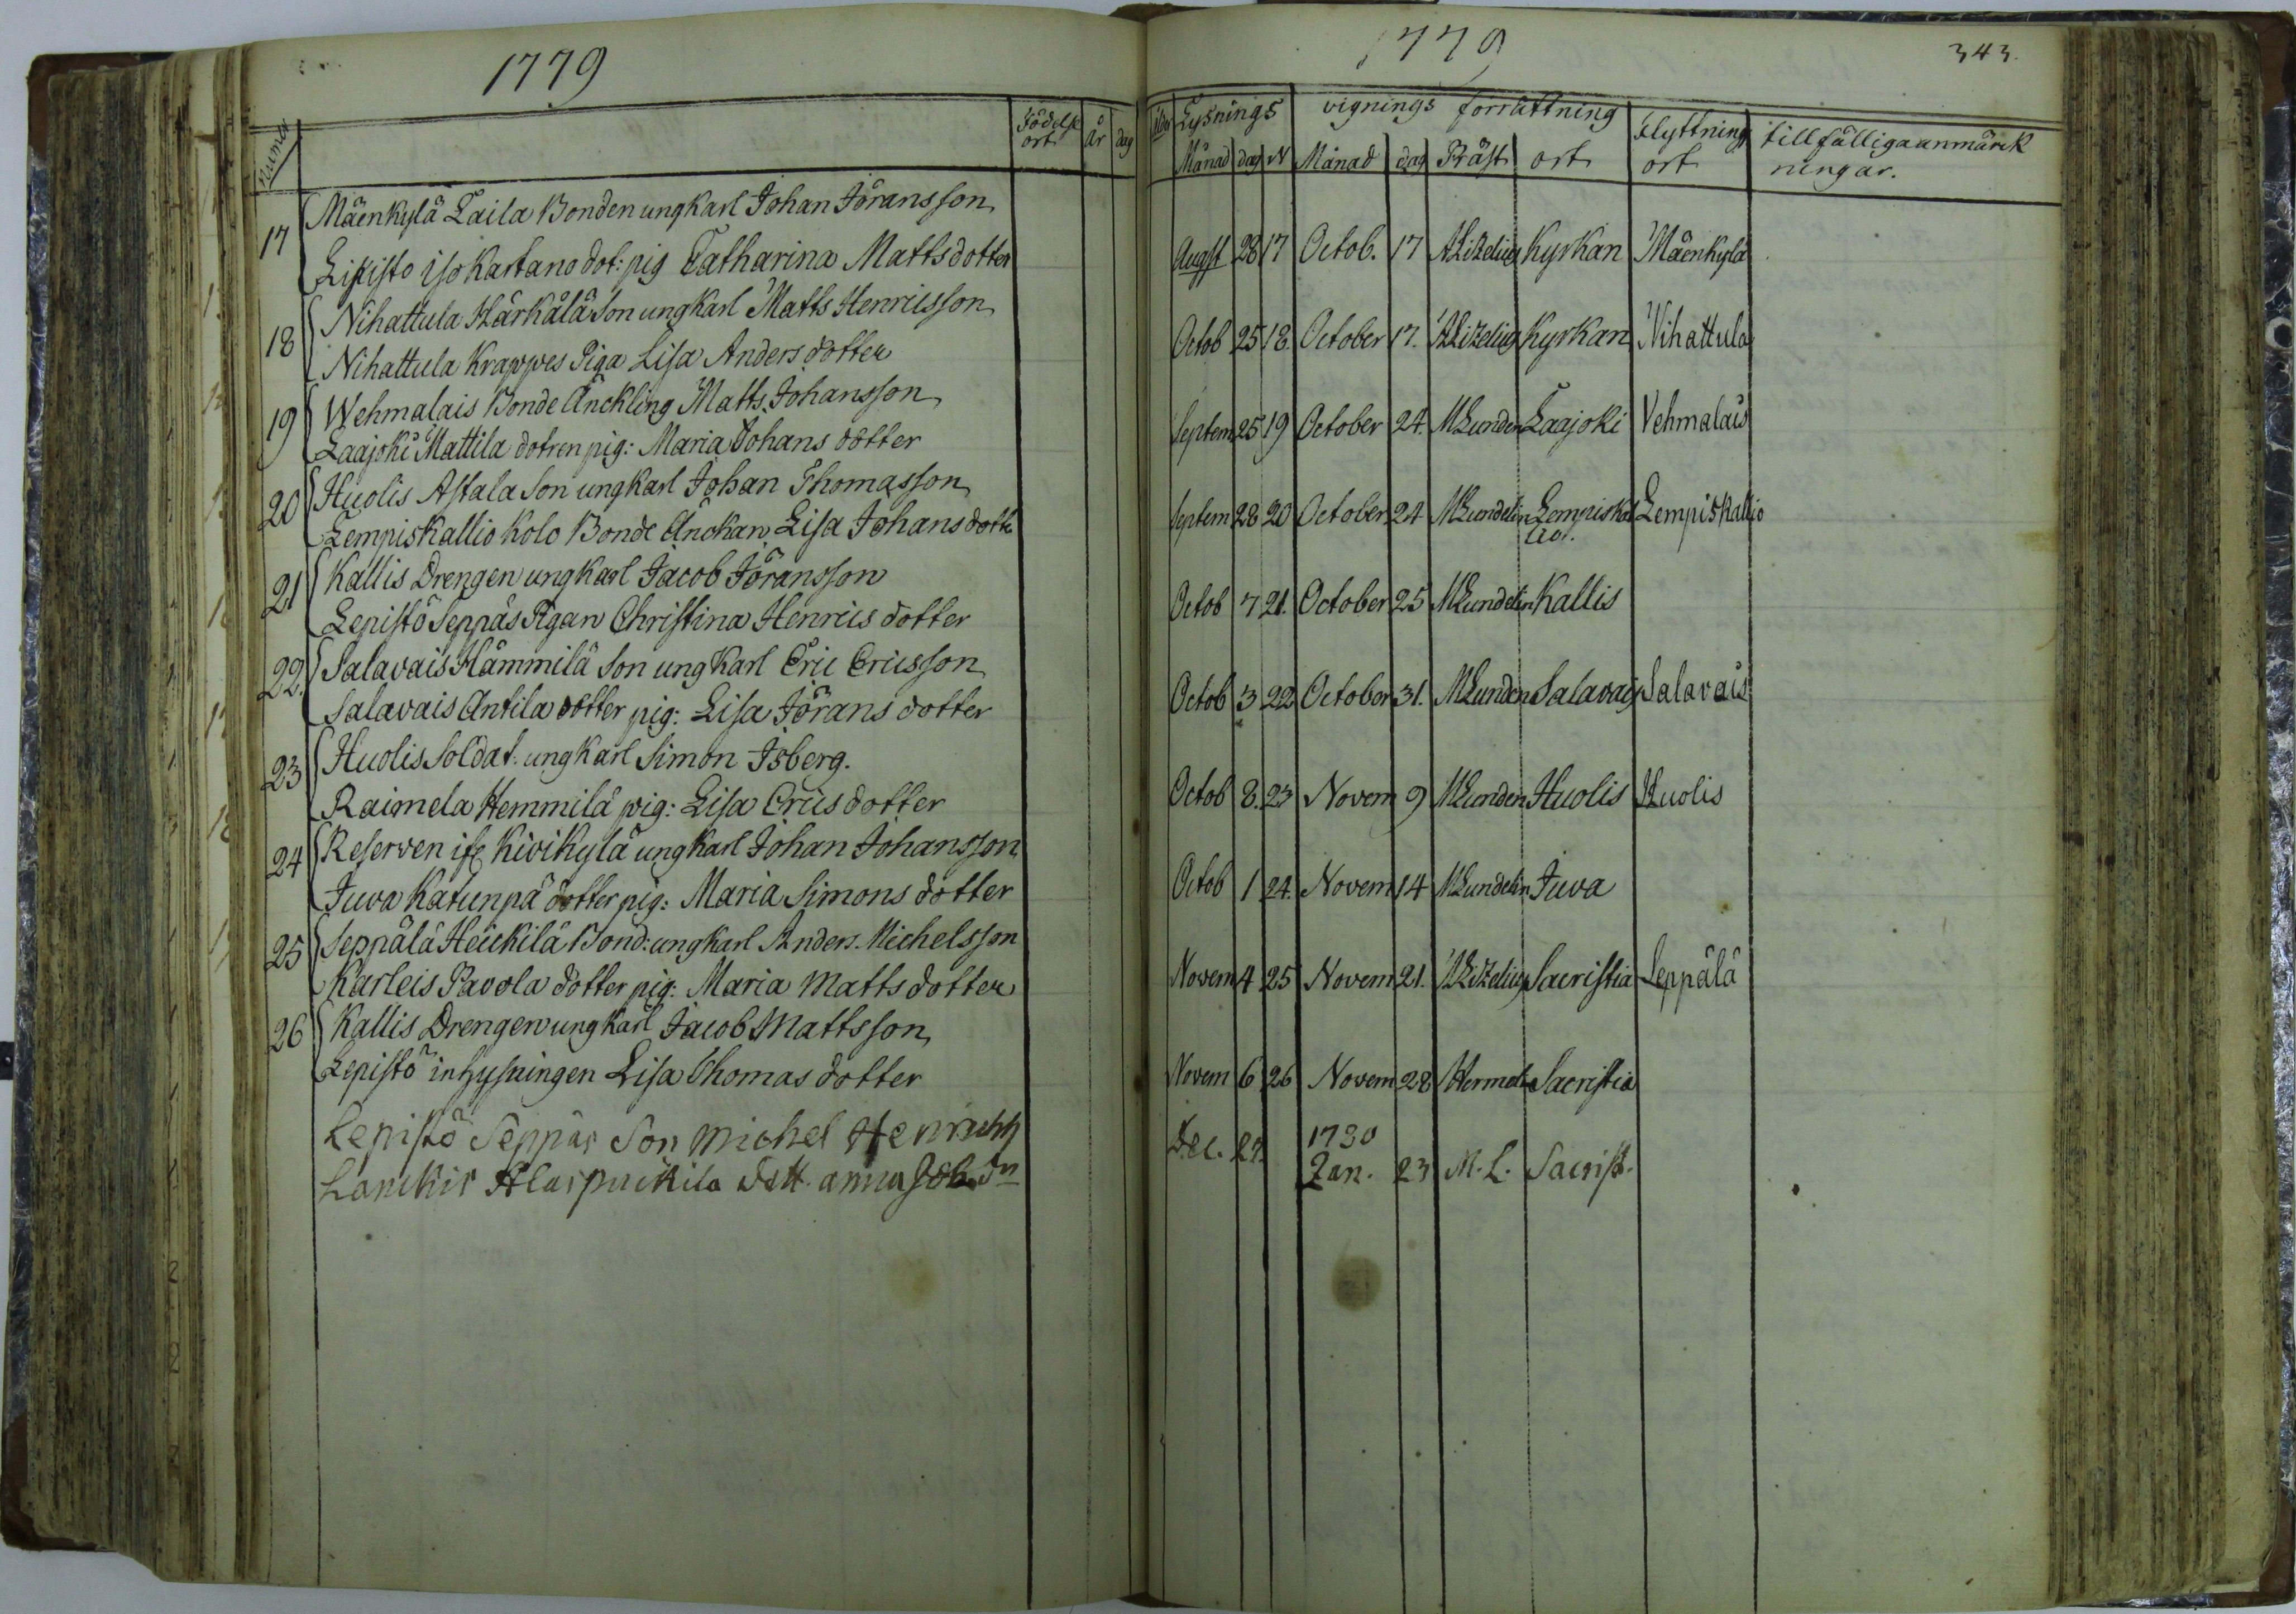 1779
Numer
Födelse ort
år
dag
17 Mäenkylä Laila Bonden ungkarl Johan Jöransson
Lipisto isokartano dot: pig Catharina Mattsdotter
18 Nihattula Härkälä Son ungkarl Matts Henricsson
Nihattula Krappes Piga Lisa Andersdotter
19 Wehmalais Bonde Änckling Matts Johansson
Laajoki Mattila dotren pig: Maria Johans dotter
20 Huolis Astala Son ungkarl Johan Thomasson
Lempiskallio Kolo Bonde Änckan Lisa Johansdott
21 Kallis Drengen ungkarl Jacob Jöransson
Lepistö Seppäs Pigan Christina Henrics dotter
22. Salavais Hämmilä Son ungkarl Eric Ericsson
Salavais Antila dotter pig: Lisa Jörans dotter
23 Huolis Soldat. ungkarl Simon Isberg.
Raimela Hemmilä pig: Lisa Erics dotter
24 Reserven Kivikylä ungkarl Johan Johansson
Juva Katunpä dotter pig: Maria Simons dotter
25 Seppälä Heickilä Bond: ungkarl Anders. Michelsson
Karleis Pavola dotter pig: Maria Matts dotter
26 Kallis Drengen ungkarl Jacob Mattsson
Lepistö inhysningen Lisa Thomas dotter
Lepistö Seppäs Son Michel
Lanckis dott. anna
1779
343.
Lysnings
vignings forrättning
flyttning ort
tillfälliga anmärk
ningar.
Månad dag N Månad dag Präst ort
Augst 28 17 Octob. 17 A Lizelius Kyrkan Mäenkylä
Octob 25 18. October 17. A Lizelius Kyrkan Nihattula
Septem 25 19 October 24. M Lunden Laajoki Vehmalais
Septem 28 20 October 24 M Lundelin Lempiskal Lempiskallio
lio.
Octob 7 21. October 25 M Lundelin Kallis
Octob 3 22 October 31. M Lunden Salavais Salavais
Octob 8. 23 Novem 9 M Lunden Huolis Huolis
Octob 1 24. Novem 14 M Lundelin Juva
Novem 4 25 Novem 21. A Lizelius Sacristia Seppälä
Novem 6 26 Novem 28 Sacristia
Dec. 27. 1780
Jan. 23 M. L. Sacrist.